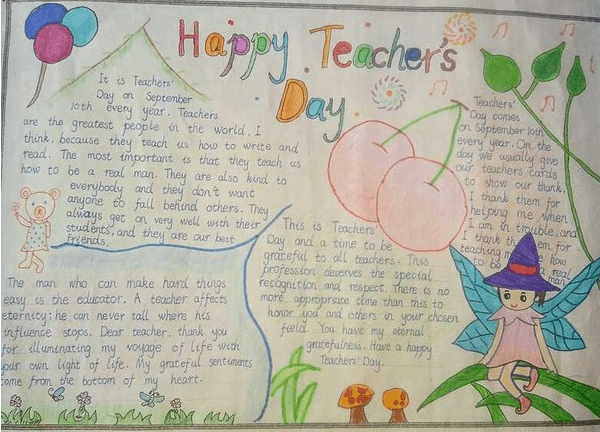 Happy Teacher's
Day
It is Teachers'
Day on September
10th every year. Teachers
are the greatest people in the world. I
think, because they teach us how to write and
read. The most important is that they teach us
how to be a real man. They are also kind to
everybody and they don't want
anyone to fall behind others. They
always get on very well with their
students, and they are our best
friends.
The man who can make hard things
easy is the educator. A teacher affects
eternity: he can never tall where his
influence stops. Dear teacher, thank you
for illuminating my voyage of life with
your own light of life. My grateful sentiments
come from the bottom of my heart.
This is Teachers'
Day and a time to be
grateful to all teachers. This
profession deserves the special
recognition and respect. There is no
more appropriate time than this to
honor you and others in your chosen
field. You have my eternal
gratefulness. Have a happy
Teachers' Day.
Teachers'
Day comes
on September 10th
every year. On the
day we usually give
our teachers cards
to show our thank.
I thank them for
helping me when
I am in trouble, and
I thank them for
teaching me how
to be a real
man